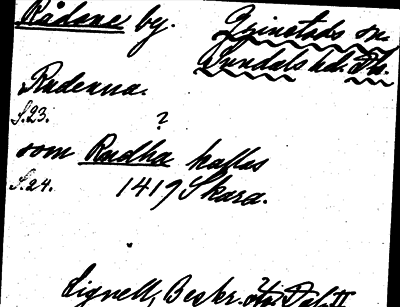 Rådene by. Grinstads sn.
Sundals hd. Ds.
Rudenna.
S. 23. ?
som Rudha kallas
S. 24. 1419 Skara.
Lignell, Beskr. Dal II